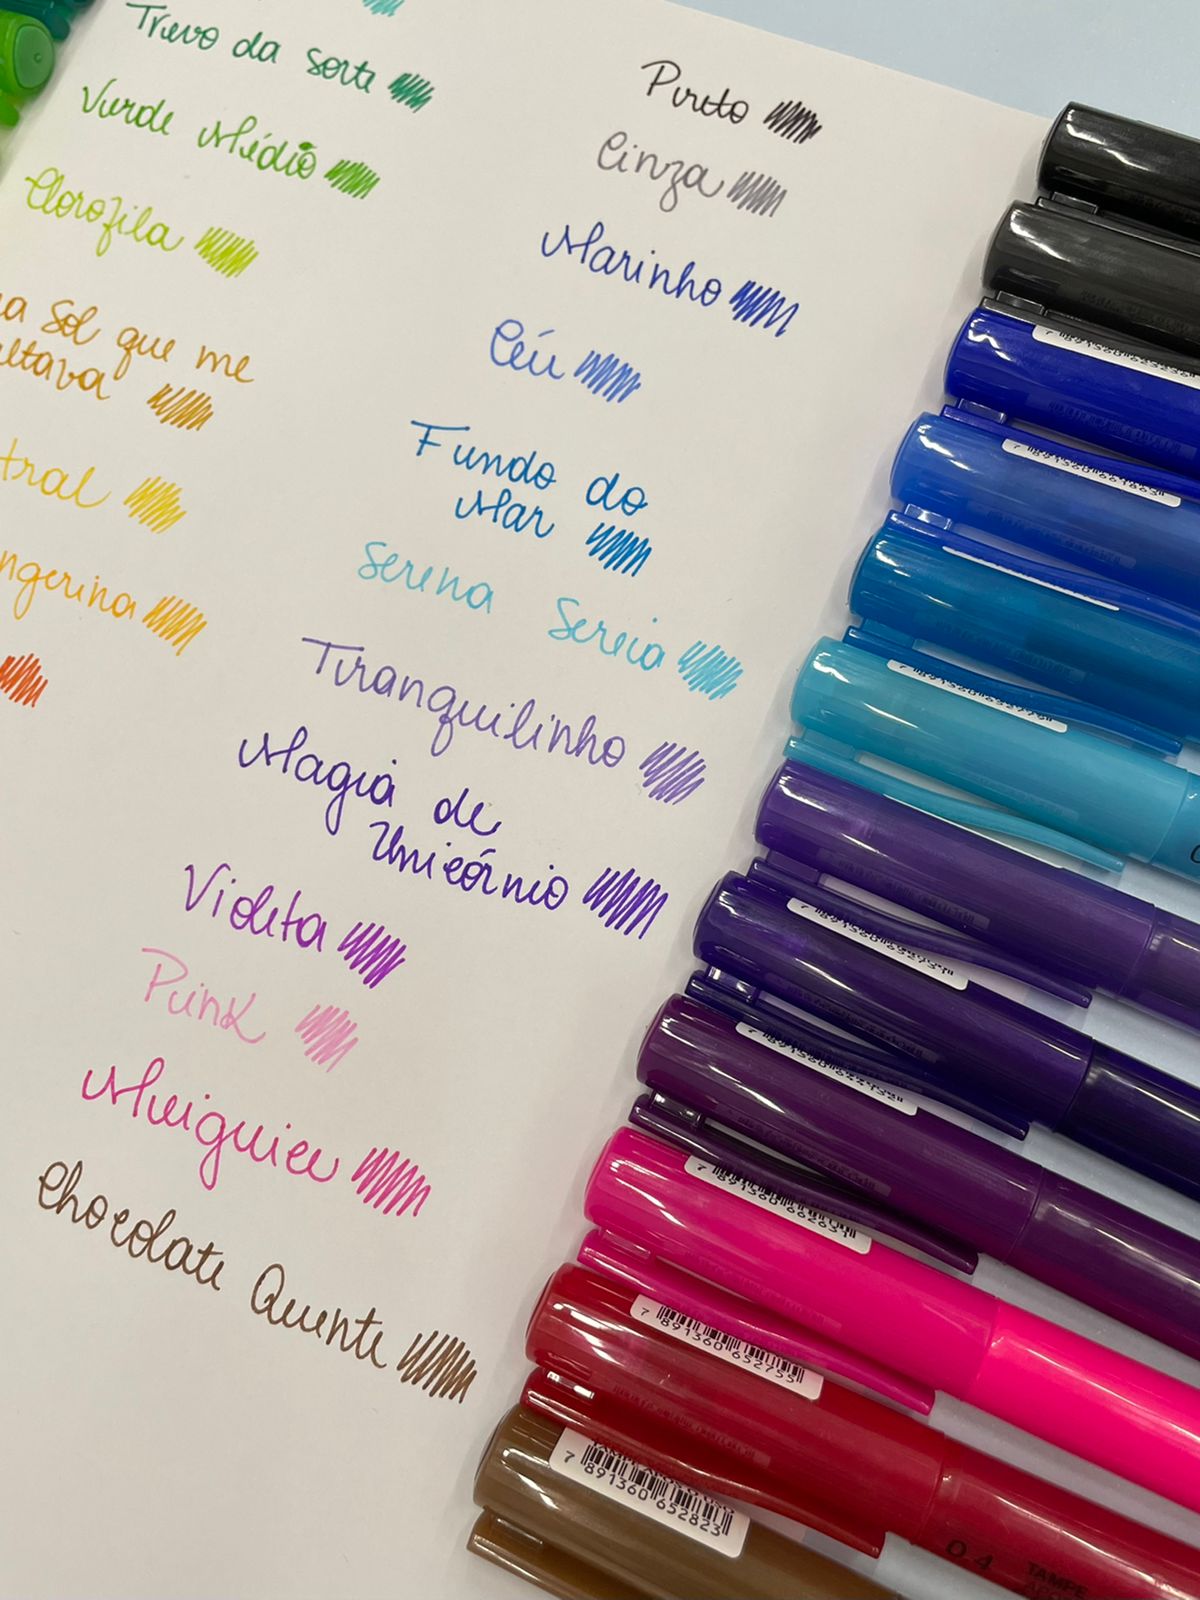 Trevo da sorte
Verde Médio
Clorofila
Sol que me
ltava
tral
ngerina
Preto
Cinza
Marinho
Céu
Fundo do
Mar
Serena Sereia
Tranquilinho
Magia de
Unicórnio
Violeta
Pink
Chocolate Quente
7 891360 652755
7 891360 652823
0.4 TAMPE